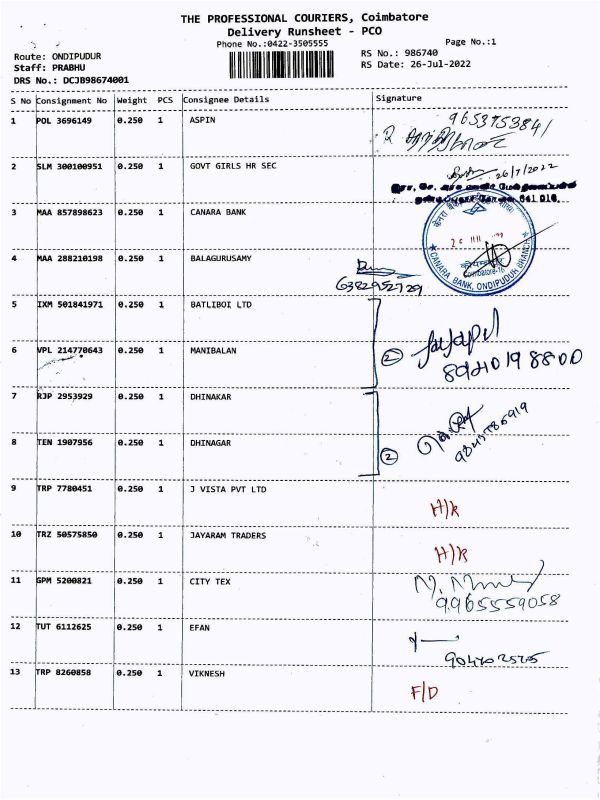 THE PROFESSIONAL COURIERS, Coimbatore
Delivery Runsheet - PCO
Phone No.:0422-3505555 Page No.:1
Route: ONDIPUDUR RS No.: 986740
Staff: PRABHU RS Date: 26-Jul-2022
DRS No.: DCJB98674001
S No Consignment No Weight PCS Consignee Details Signature
1 POL 3696149 0.250 1 ASPIN
2 SLM 300100951 0.250 1 GOVT GIRLS HR SEC 26/7/2022
641 016.
3 MAA 857898623 0.250 1 CANARA BANK
CANARA BANK, ONDIPUDUR BRANCH
Coimbatore-16
4 MAA 288210198 0.250 1 BALAGURUSAMY
6382952729
5 IXM 501841971 0.250 1 BATLIBOI LTD
6 VPL 214770643 0.250 1 MANIBALAN 2
7 RJP 2953929 0.250 1 DHINAKAR
8 TEN 1907956 0.250 1 DHINAGAR 2
9 TRP 7780451 0.250 1 J VISTA PVT LTD
10 TRZ 50575850 0.250 1 JAYARAM TRADERS
11 GPM 5200821 0.250 1 CITY TEX
9965559058
12 TUT 6112625 0.250 1 EFAN
13 TRP 8260858 0.250 1 VIKNESH F/D